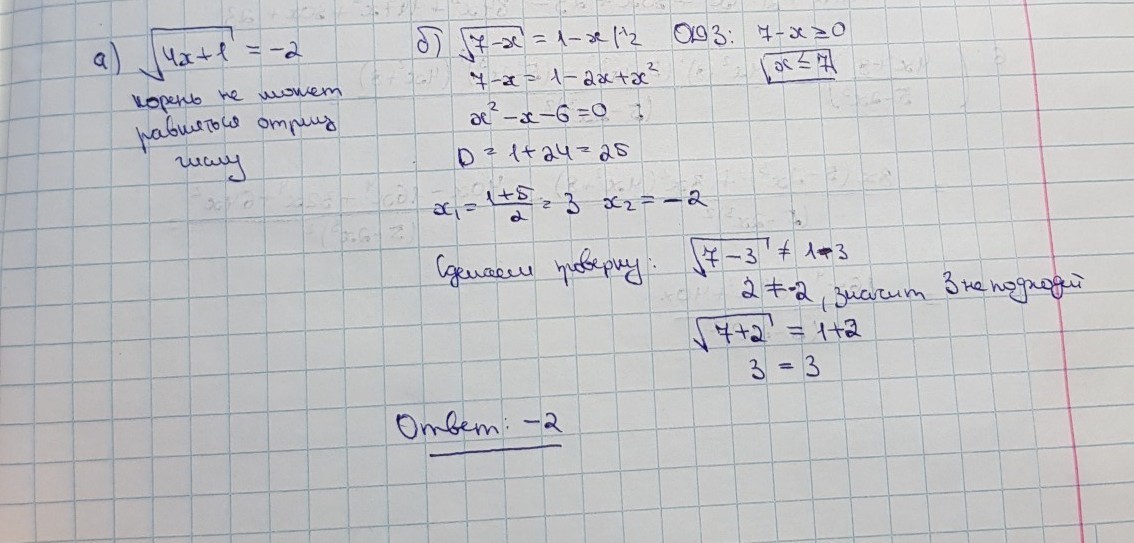 а) √4x+1 = -2
корень не может
равняться отриц
числу
б) √7-x = 1-x |^2 ОДЗ: 7-x ≥ 0
x ≤ 7
7-x = 1-2x+x²
x²-x-6=0
D = 1+24 = 25
x₁ = (1+5)/2 = 3 x₂ = -2
Сделаем проверку: √7-3 ≠ 1-3
2 ≠ -2, значит 3 не подходит
√7+2 = 1+2
3 = 3
Ответ: -2